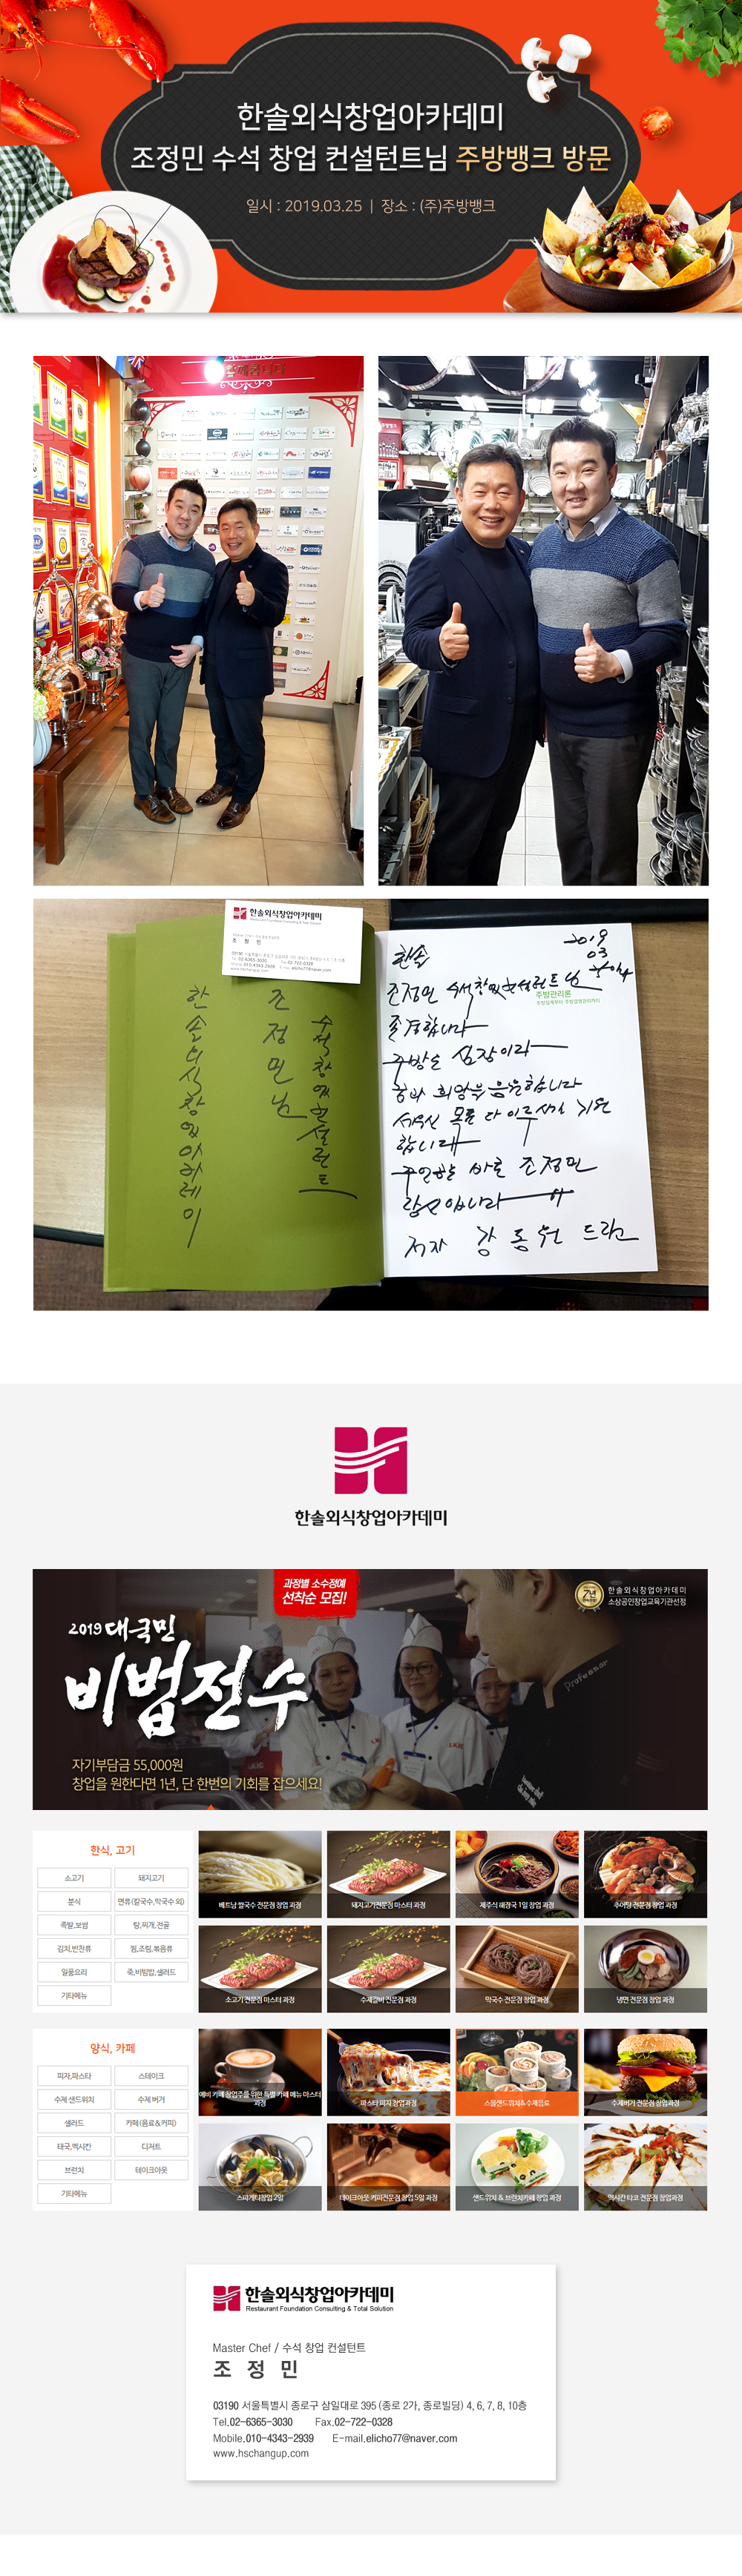 한솔외식창업아카데미
조정민 수석 창업 컨설턴트님 주방뱅크 방문
일시 : 2019.03.25 | 장소 : (주)주방뱅크
함께합니다
한솔외식창업아카데미
조 정 민
한솔외식창업아카데미
조정민님
수석창업컨설턴트
2019
03
한솔
조정민 수석창업컨설턴트님
주방관리론
존경합니다
주방은 심장이라
꿈과 희망을 응원합니다
목표 다 이루시길 기원
합니다
주인공은 바로 조정민
저자 강동원 드림
한솔외식창업아카데미
과정별 소수정예
선착순 모집!
7년
한솔외식창업아카데미
소상공인창업교육기관선정
2019 대국민
비법전수
Professor
자기부담금 55,000원
창업을 원한다면 1년, 단 한번의 기회를 잡으세요!
한식, 고기
소고기 돼지고기
분식 면류(칼국수,막국수 외)
족발,보쌈 탕,찌개,전골
김치,반찬류 찜,조림,볶음류
일품요리 죽,비빔밥,샐러드
기타메뉴
베트남 쌀국수 전문점 창업 과정
돼지고기전문점 마스터 과정
제주식 해장국 1일 창업 과정
추어탕 전문점 창업 과정
소고기 전문점 마스터 과정
수제갈비 전문점 과정
막국수 전문점 창업 과정
냉면 전문점 창업 과정
양식, 카페
피자,파스타 스테이크
수제 샌드위치 수제 버거
샐러드 카페(음료&커피)
태국,멕시칸 디저트
브런치 테이크아웃
기타메뉴
예비 카페 창업주를 위한 특별 카페 메뉴 마스터 과정
파스타 피자 창업과정
스몰샌드위치&수제음료
수제버거 전문점 창업과정
스파게티창업 2일
테이크아웃 커피전문점 창업 5일 과정
샌드위치 & 브런치카페 창업 과정
멕시칸 타코 전문점 창업과정
한솔외식창업아카데미
Restaurant Foundation Consulting & Total Solution
Master Chef / 수석 창업 컨설턴트
조 정 민
03190 서울특별시 종로구 삼일대로 395 (종로 2가, 종로빌딩) 4, 6, 7, 8, 10층
Tel.02-6365-3030 Fax.02-722-0328
Mobile.010-4343-2939 E-mail.elicho77@naver.com
www.hschangup.com